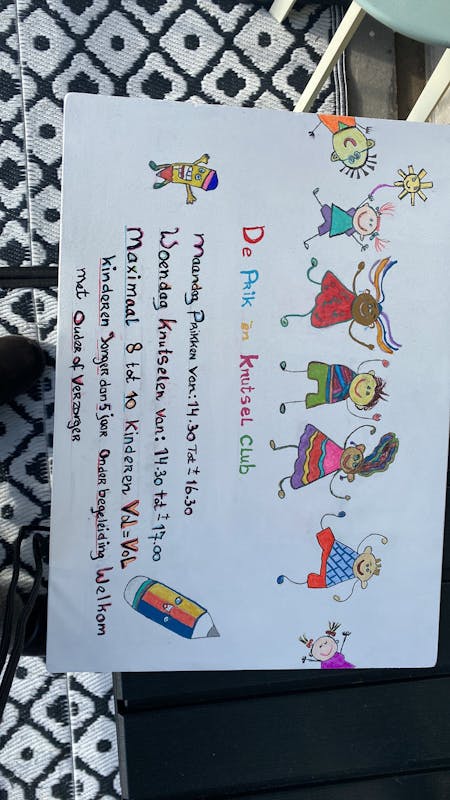 De Prik en Knutsel club
Maandag Prikken van: 14.30 Tot ± 16.30
Woendag Knutselen van: 14.30 tot ± 17.00
Maximaal 8 tot 10 kinderen Vol = Vol
kinderen Jonger dan 5 jaar onder begeleiding Welkom
met Ouder of Verzorger